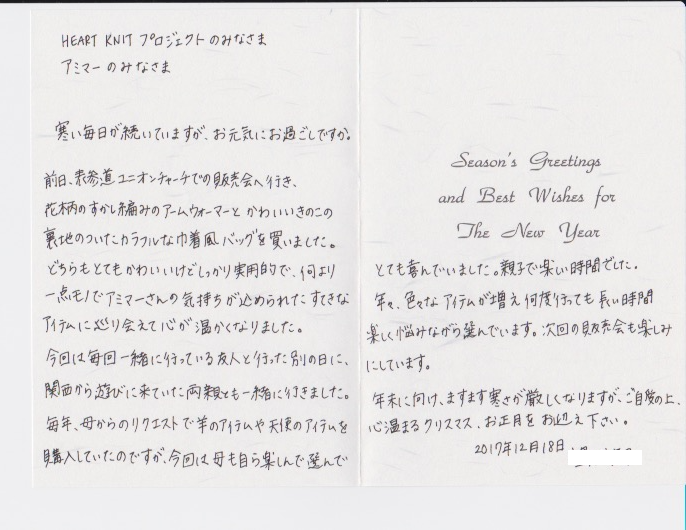 HEART KNIT プロジェクトのみなさま
アミマーのみなさま
寒い毎日が続いていますが、お元気にお過ごしですか。
前日、表参道ユニオンチャーチでの販売会へ行き、
花柄のすかし編みのアームウォーマーと かわいいきのこの
裏地のついたカラフルな巾着風バッグを買いました。
どちらもとてもかわいいけどしっかり実用的で、何より
一点モノでアミマーさんの気持ちが込められたすてきな
アイテムに巡り会えて心が温かくなりました。
今回は毎回一緒に行っている友人と行った別の日に、
関西から遊びに来ていた両親とも一緒に行きました。
毎年、母からのリクエストで羊のアイテムや天使のアイテムを
購入していたのですが、今回は母も自ら楽しんで選んで
Season's Greetings
and Best Wishes for
The New Year
とても喜んでいました。親子で楽しい時間でした。
年々、色々なアイテムが増え何度行っても長い時間
楽しく悩みながら選んでいます。次回の販売会も楽しみ
にしています。
年末に向け、ますます寒さが厳しくなりますが、ご自愛の上、
心温まるクリスマス、お正月をお迎え下さい。
2017年12月18日